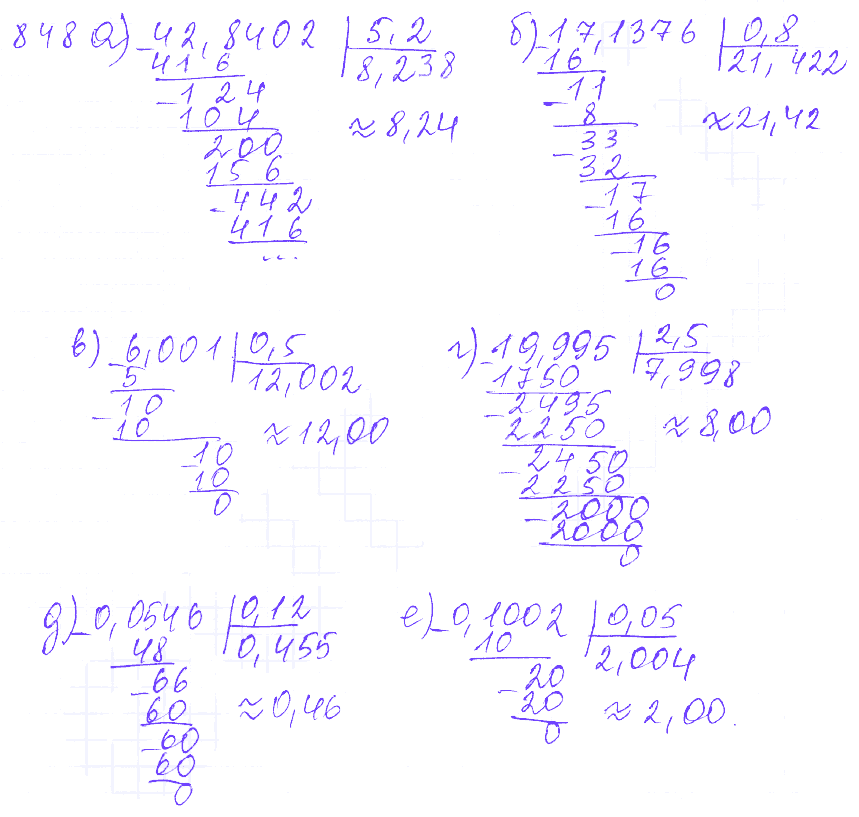 848 а) -42,8402 | 5,2
416 8,238
-124
104 ≈ 8,24
200
156
-442
416
...
б) -17,1376 | 0,8
16 21,422
-11
8 ≈ 21,42
-33
32
-17
16
-16
16
0
в) -6,001 | 0,5
5 12,002
-10
10 ≈ 12,00
-10
10
0
г) -19,995 | 2,5
1750 7,998
-2495
2250 ≈ 8,00
-2450
2250
-2000
2000
0
д) -0,0546 | 0,12
48 0,455
-66
60 ≈ 0,46
-60
60
0
е) -0,1002 | 0,05
10 2,004
-20
20 ≈ 2,00.
0